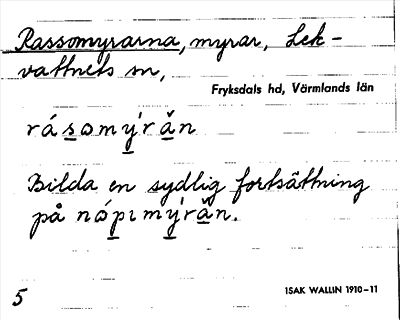 Rassomyrarna, myrar, Lek-
vattnets sn,
Fryksdals hd, Värmlands län
rásomy´răn
Bilda en sydlig fortsättning
på nópımy´răn.
5
ISAK WALLIN 1910-11